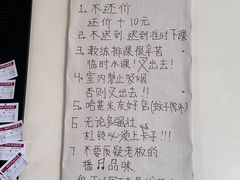 1. 不还价
还价+10元
2. 不迟到 迟到准时下课
3. 教练排课很辛苦
临时水课！叉出去！
4. 室内禁止吸烟
否则叉出去！！
5. 哈基米友好店
6. 无论多强壮
杠铃必须上卡子！！！
7. 不要质疑老板的
播🎵品味